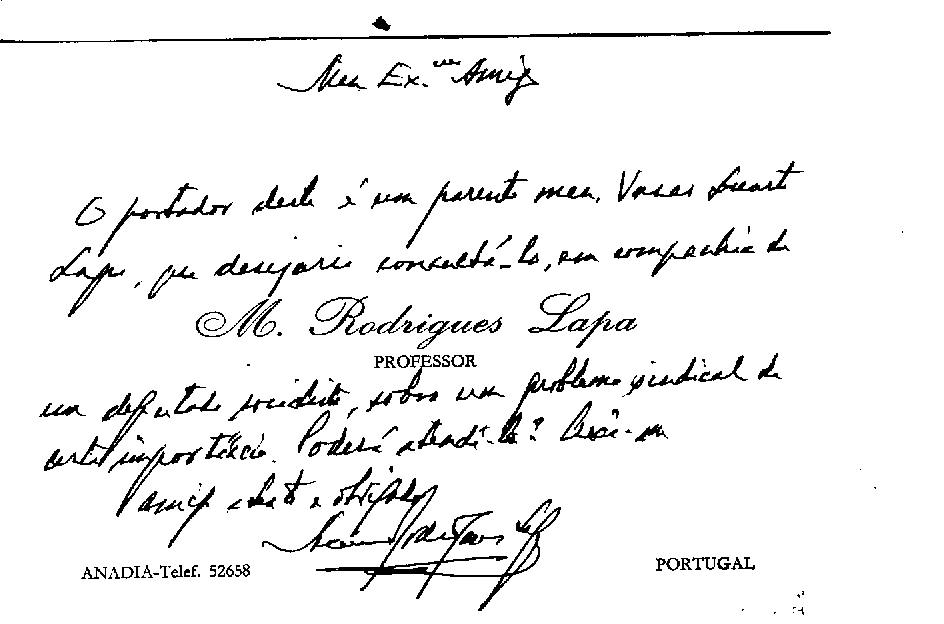 Meu Ex.mo Amigo
O portador deste é um parente meu, Vasco Duarte
Lapa, que desejaria consultá-lo, em companhia de
M. Rodrigues Lapa
PROFESSOR
um deputado socialista, sobre um problema sindical de
certa importância. Poderá atendê-lo? Creia-me
amigo e obrigado
ANADIA-Telef. 52658
PORTUGAL